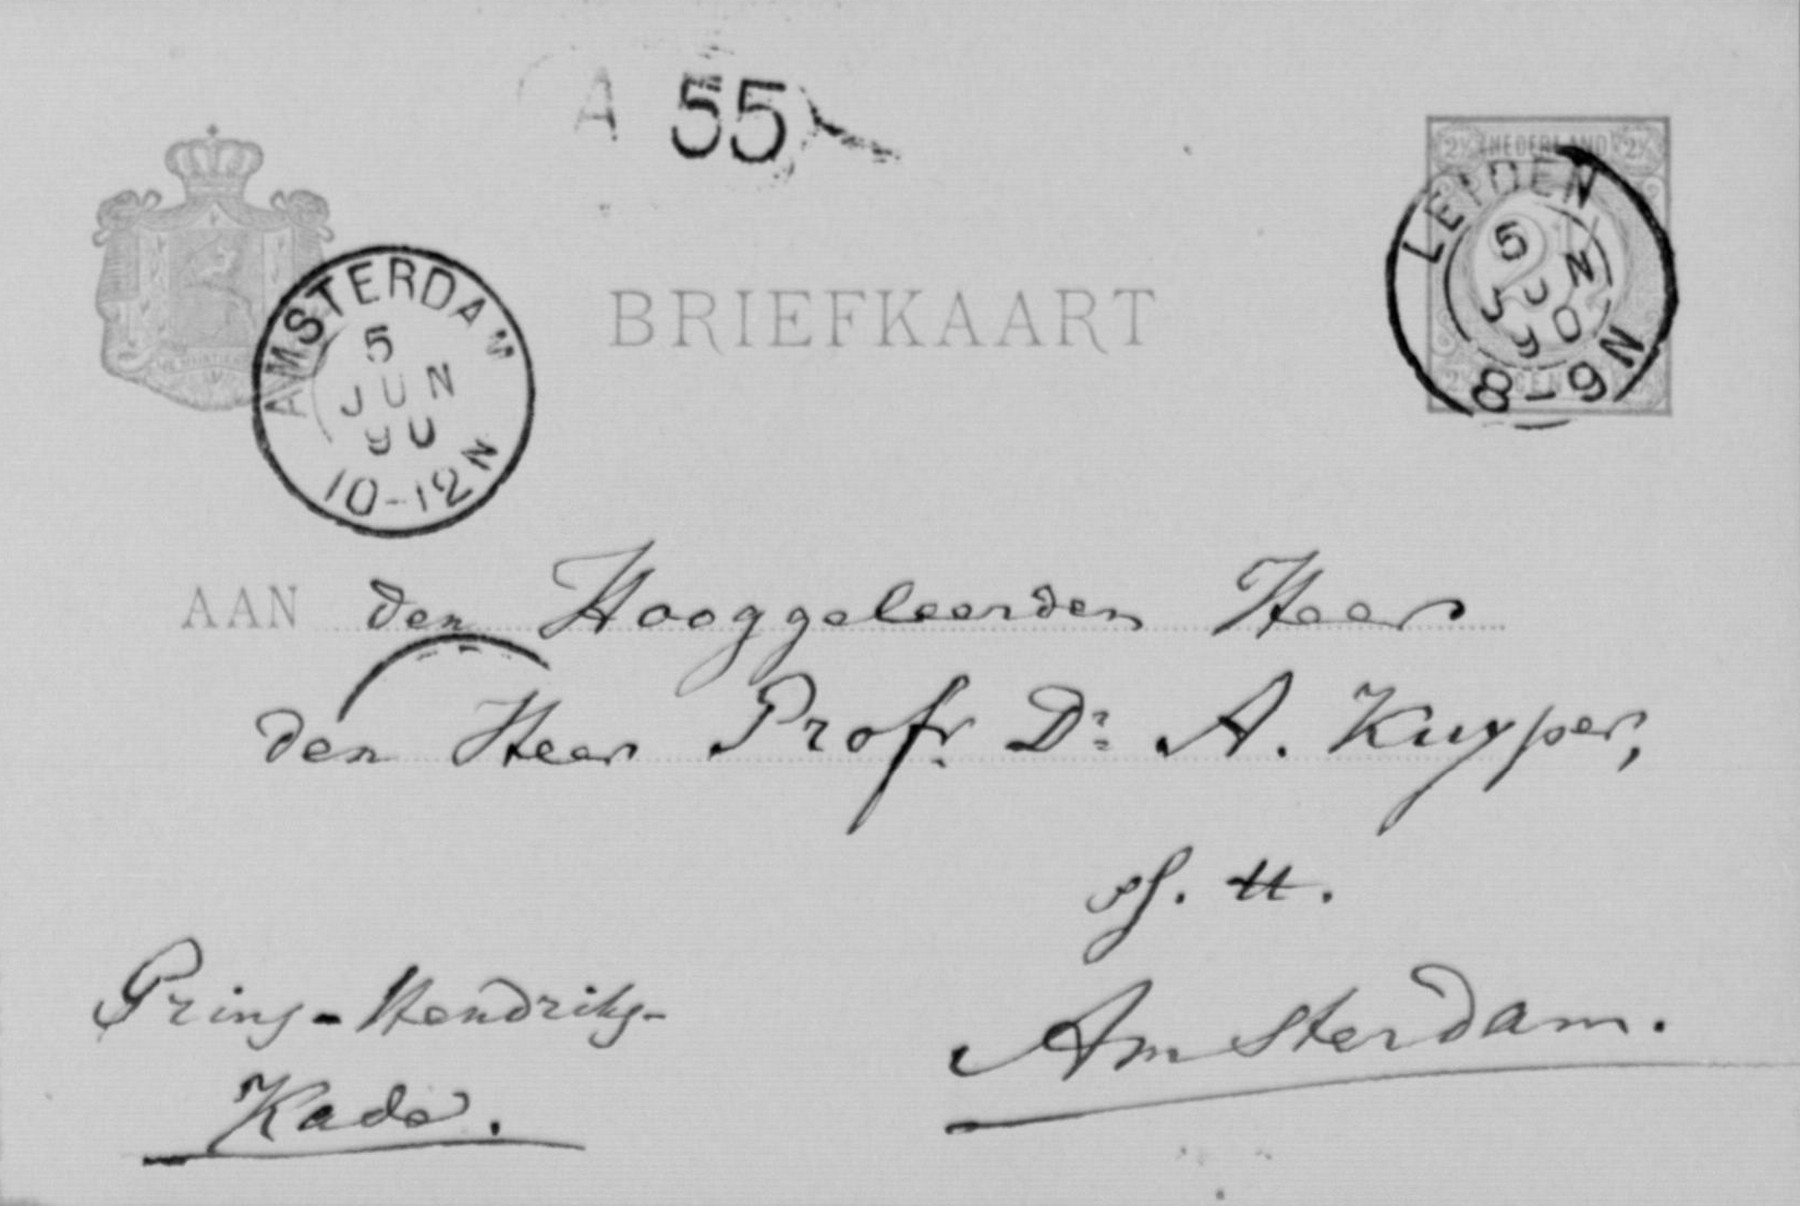 A 55
NEDERLAND
LEIDEN
5 JUN 90
8-9N
BRIEFKAART
AMSTERDAM
5
JUN
90
10-12N
AAN den Hooggeleerden Heer
den Heer Profr. Dr. A. Kuyper,
Amsterdam.
Prins-Hendriks-
Kade.